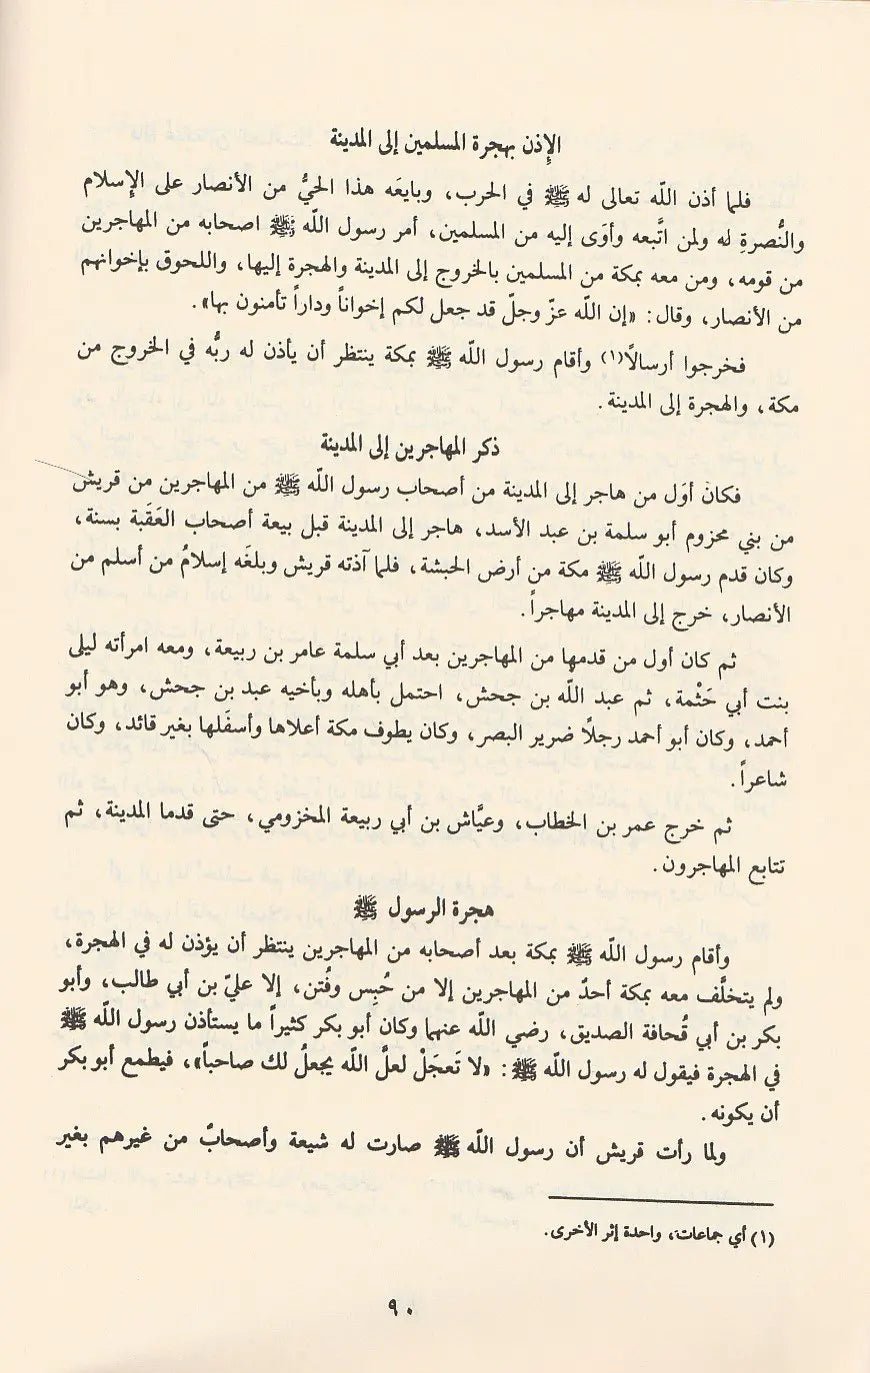 الإِذن بهجرة المسلمين إلى المدينة
فلما أذن اللّه تعالى له ﷺ في الحرب، وبايعَه هذا الحيُّ من الأنصار على الإِسلام
والنُّصرةِ له ولمن اتَّبعه وأوَى إليه من المسلمين، أمر رسول اللّه ﷺ اصحابه من المهاجرين
من قومه، ومن معه بمكة من المسلمين بالخروج إلى المدينة والهجرة إليها، واللحوق بإخوانهم
من الأنصار، وقال: «إن اللّه عزّ وجلّ قد جعل لكم إخواناً وداراً تأمنون بها».
فخرجوا أرسالًا(١) وأقام رسول اللّه ﷺ بمكة ينتظر أن يأذن له ربُّه في الخروج من
مكة، والهجرة إلى المدينة.
ذكر المهاجرين إلى المدينة
فكان أوَل من هاجر إلى المدينة من أصحاب رسول اللّه ﷺ من المهاجرين من قريش
من بني مخزوم أبو سلمة بن عبد الأسد، هاجر إلى المدينة قبل بيعة أصحاب العَقَبة بسنة،
وكان قدم رسول اللّه ﷺ مكة من أرض الحبشة، فلما آذته قريش وبلغَه إسلامُ من أسلم من
الأنصار، خرج إلى المدينة مهاجراً.
ثم كان أول من قدمها من المهاجرين بعد أبي سلمة عامر بن ربيعة، ومعه امرأته ليلى
بنت أبي حَثْمة، ثم عبد اللّه بن جحش، احتمل بأهله وبأخيه عبد بن جحش، وهو أبو
أحمد، وكان أبو أحمد رجلًا ضرير البصر، وكان يطوف مكة أعلاها وأسفَلها بغير قائد، وكان
شاعراً.
ثم خرج عمر بن الخطاب، وعيَّاش بن أبي ربيعة المخزومي، حتى قدما المدينة، ثم
تتابع المهاجرون.
هجرة الرسول ﷺ
وأقام رسول اللّه ﷺ بمكة بعد أصحابه من المهاجرين ينتظر أن يؤذن له في الهجرة،
ولم يتخلَّف معه بمكة أحدٌ من المهاجرين إلا من حُبِس وفُتن، إلا عليّ بن أبي طالب، وأبو
بكر بن أبي قُحافة الصديق، رضي اللّه عنهما وكان أبو بكر كثيراً ما يستأذن رسول اللّه ﷺ
في الهجرة فيقول له رسول اللّه ﷺ: «لا تَعجَلْ لعلَّ اللّه يجعلُ لك صاحباً»، فيطمع أبو بكر
أن يكونه.
ولما رأت قريش أن رسول اللّه ﷺ صارت له شيعة وأصحابٌ من غيرهم بغير
(١) أي جماعات، واحدة إثر الأخرى.
٩٠